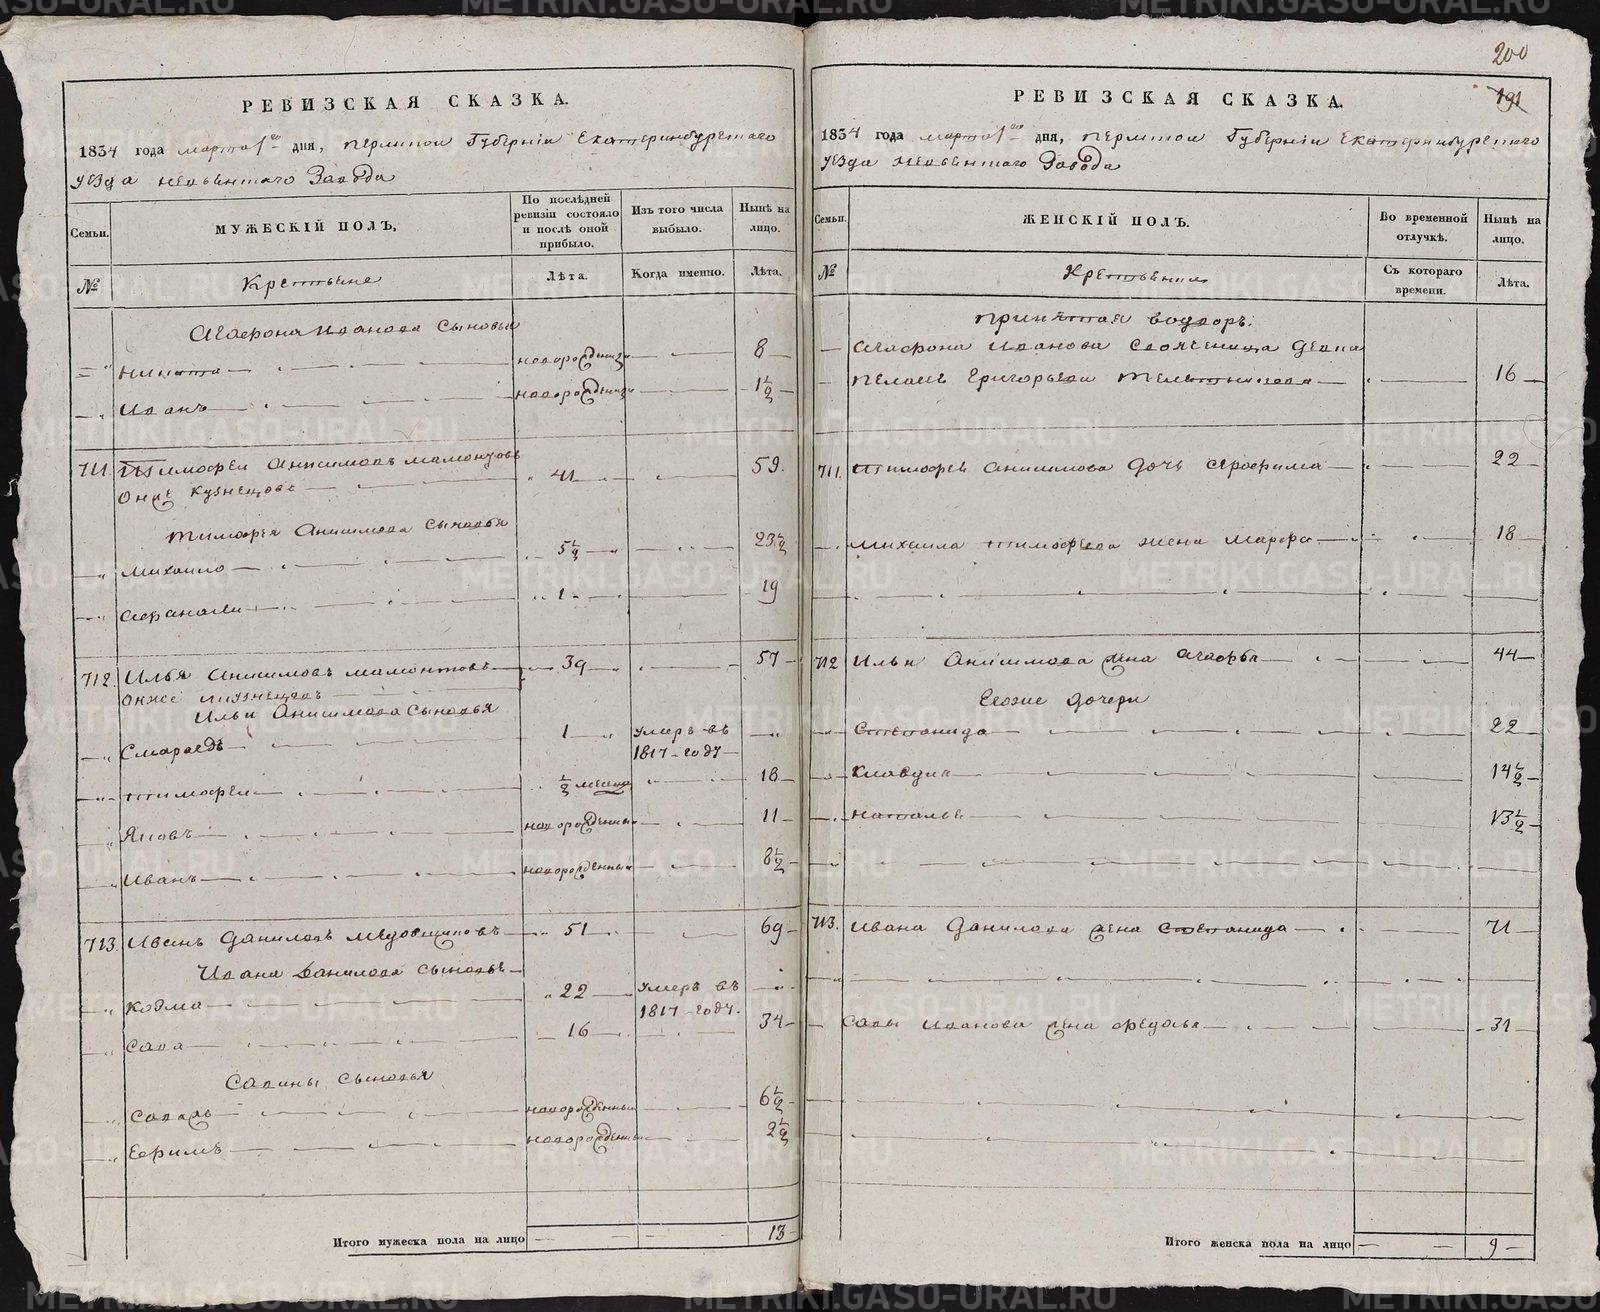 200
191
РЕВИЗСКАЯ СКАЗКА.
1834 года марта 1го дня, Пермской Губерніи Екатеринбургского
уѣзда невьянского Завода
Семьи.
МУЖЕСКІЙ ПОЛЪ,
По послѣдней ревизіи состояло и послѣ оной прибыло.
Изъ того числа выбыло.
Нынѣ на лицо.
№
Крестьяне
Лѣта.
Когда именно.
Лѣта.
Агафона Иванова сыновья
Никита новорожденный 8
Иванъ новорожденный 1½
711. Тимофеи Анисимовъ мамонтовъ 41 59.
Онже Кузнецовъ
Тимофея Анисимова сыновья
Михаило 5½ 23½
Афанасеи 1 19
712. Илья Анисимовъ мамонтовъ 39 57
Онже Кузнецовъ
Ильи Анисимова сыновья
Смарагдъ 1 умеръ въ
1817 году
тимофеи ½ месяца 18
Яковъ новорожденный 11
Иванъ новорожденный 8½
713. Иванъ Даниловъ медовщиковъ 51 69
Ивана Данилова сыновья
Козма 22 умеръ въ
1817 году.
Сава 16 34
Савины сыновья
новорожденный 6½
Ефимъ новорожденный 2½
Итого мужеска пола на лицо 13
РЕВИЗСКАЯ СКАЗКА.
1834 года марта 1го дня, Пермской Губерніи Екатеринбургского
уѣзда невьянского Завода
Семьи.
ЖЕНСКІЙ ПОЛЪ.
Во временной отлучкѣ.
Нынѣ на лицо.
№
Крестьянки
Съ котораго времени.
Лѣта.
Агафона Иванова
Григорьева 16
711. тимофея анисимова дочь серафима 22
михаила тимофеева жена Марфа 18
712 Ильи Анисимова жена 44
Егоже дочери
Степанида 22
Клавдия 14½
наталья 13½
713. Ивана Данилова жена степанида 71
Савы Иванова жена федосья 31
Итого женска пола на лицо 9
METRIKI.GASO-URAL.RU